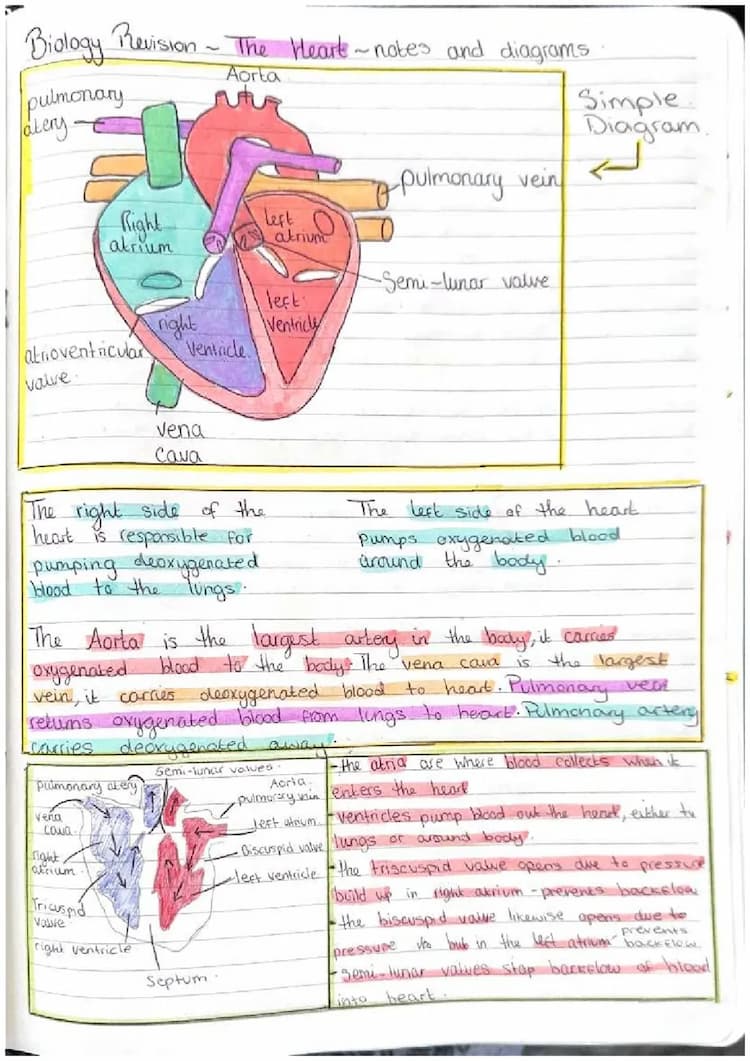 Biology Revision ~ The Heart ~ notes and diagrams.
Aorta
pulmonary
atery
Simple
Diagram.
pulmonary vein
Right
atrium
left
atrium
Semi-lunar valve
left
ventricle
right
ventricle.
atrioventricular
valve.
vena
cava
The right side of the
heart is responsible for
pumping deoxygenated
blood to the lungs.
The left side of the heart
pumps oxygenated blood
around the body.
The Aorta is the largest artery in the body, it carries
oxygenated blood to the body. The vena cava is the largest
vein, it carries deoxygenated blood to heart. Pulmonary vein
returns oxygenated blood from lungs to heart. Pulmonary artery
carries deoxygenated away.
Semi-lunar valves.
pulmonary atery
Aorta.
pulmonary vein
vena
cava
left atrium.
Biscuspid valve
right
atrium
left ventricle.
Tricuspid
valve
right ventricle
Septum.
- the atria are where blood collects when it
enters the heart
- ventricles pump blood out the heart, either to
lungs or around body.
- the triscuspid valve opens due to pressure
build up in right atrium - prevents backflow
- the biscuspid valve likewise opens due to
pressure in the left atrium - prevents
backflow
- semi-lunar valves stop backflow of blood
into heart.